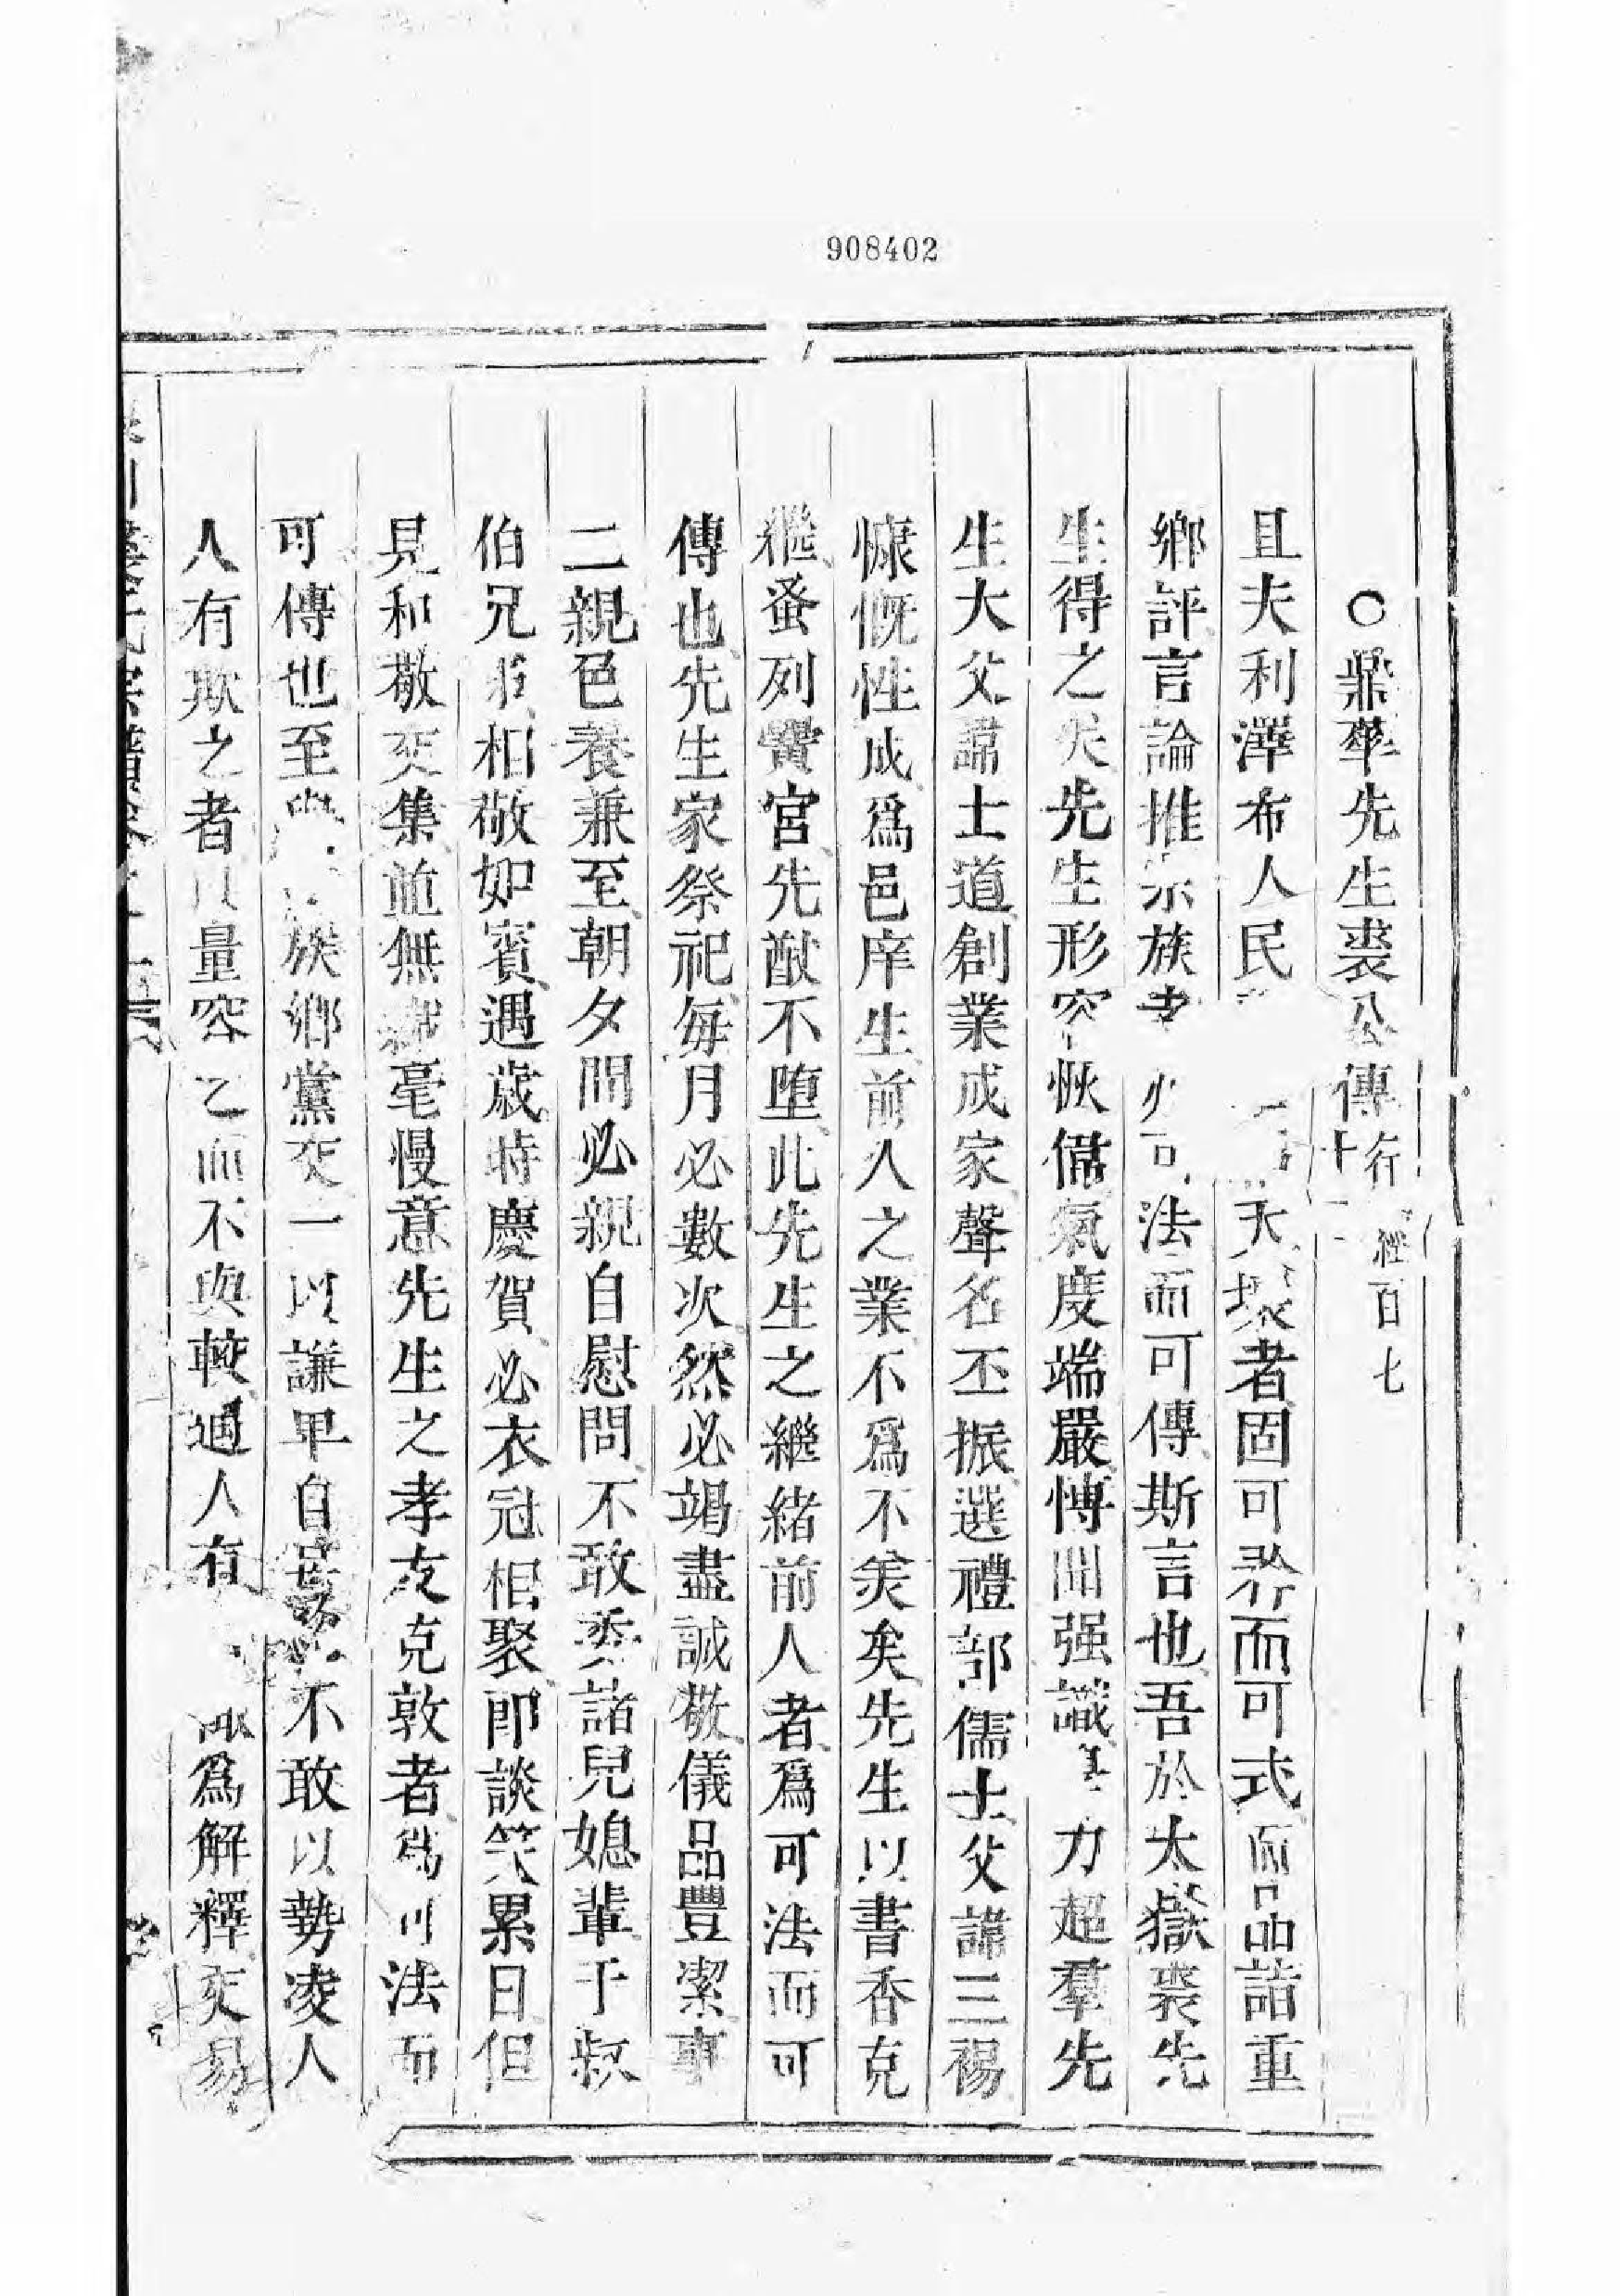 908402
○鼎華先生裘公傳行經百七十一
且夫利澤布人民 天壤者固可矜而可式而品詣重
鄉評言論推宗族者 可法而可傳斯言也吾於太嶽裘先
生得之矣先生形容恢偹氣度端嚴愽聞强識 力超羣先
生大父諱士道創業成家聲名丕振選禮部儒士父諱三裼
慷慨性成爲邑庠生前人之業不爲不羙矣先生以書香克
繼蚤列黌宮先猷不墮此先生之繼緒前人者爲可法而可
傳也先生家祭祀每月必數次然必竭盡誠敬儀品豐潔事
二親色養兼至朝夕間必親自慰問不敢委諸兒媳輩于叔
伯兄弟相敬如賓遇歲時慶賀必衣冠相聚即談笑累日但
見和敬交集並無絲毫慢意先生之孝友克敦者爲可法而
可傳也至 族鄉黨交一以謙卑自 不敢以勢凌人
人有欺之者以量容之而不與較遇人有 爲解釋交易